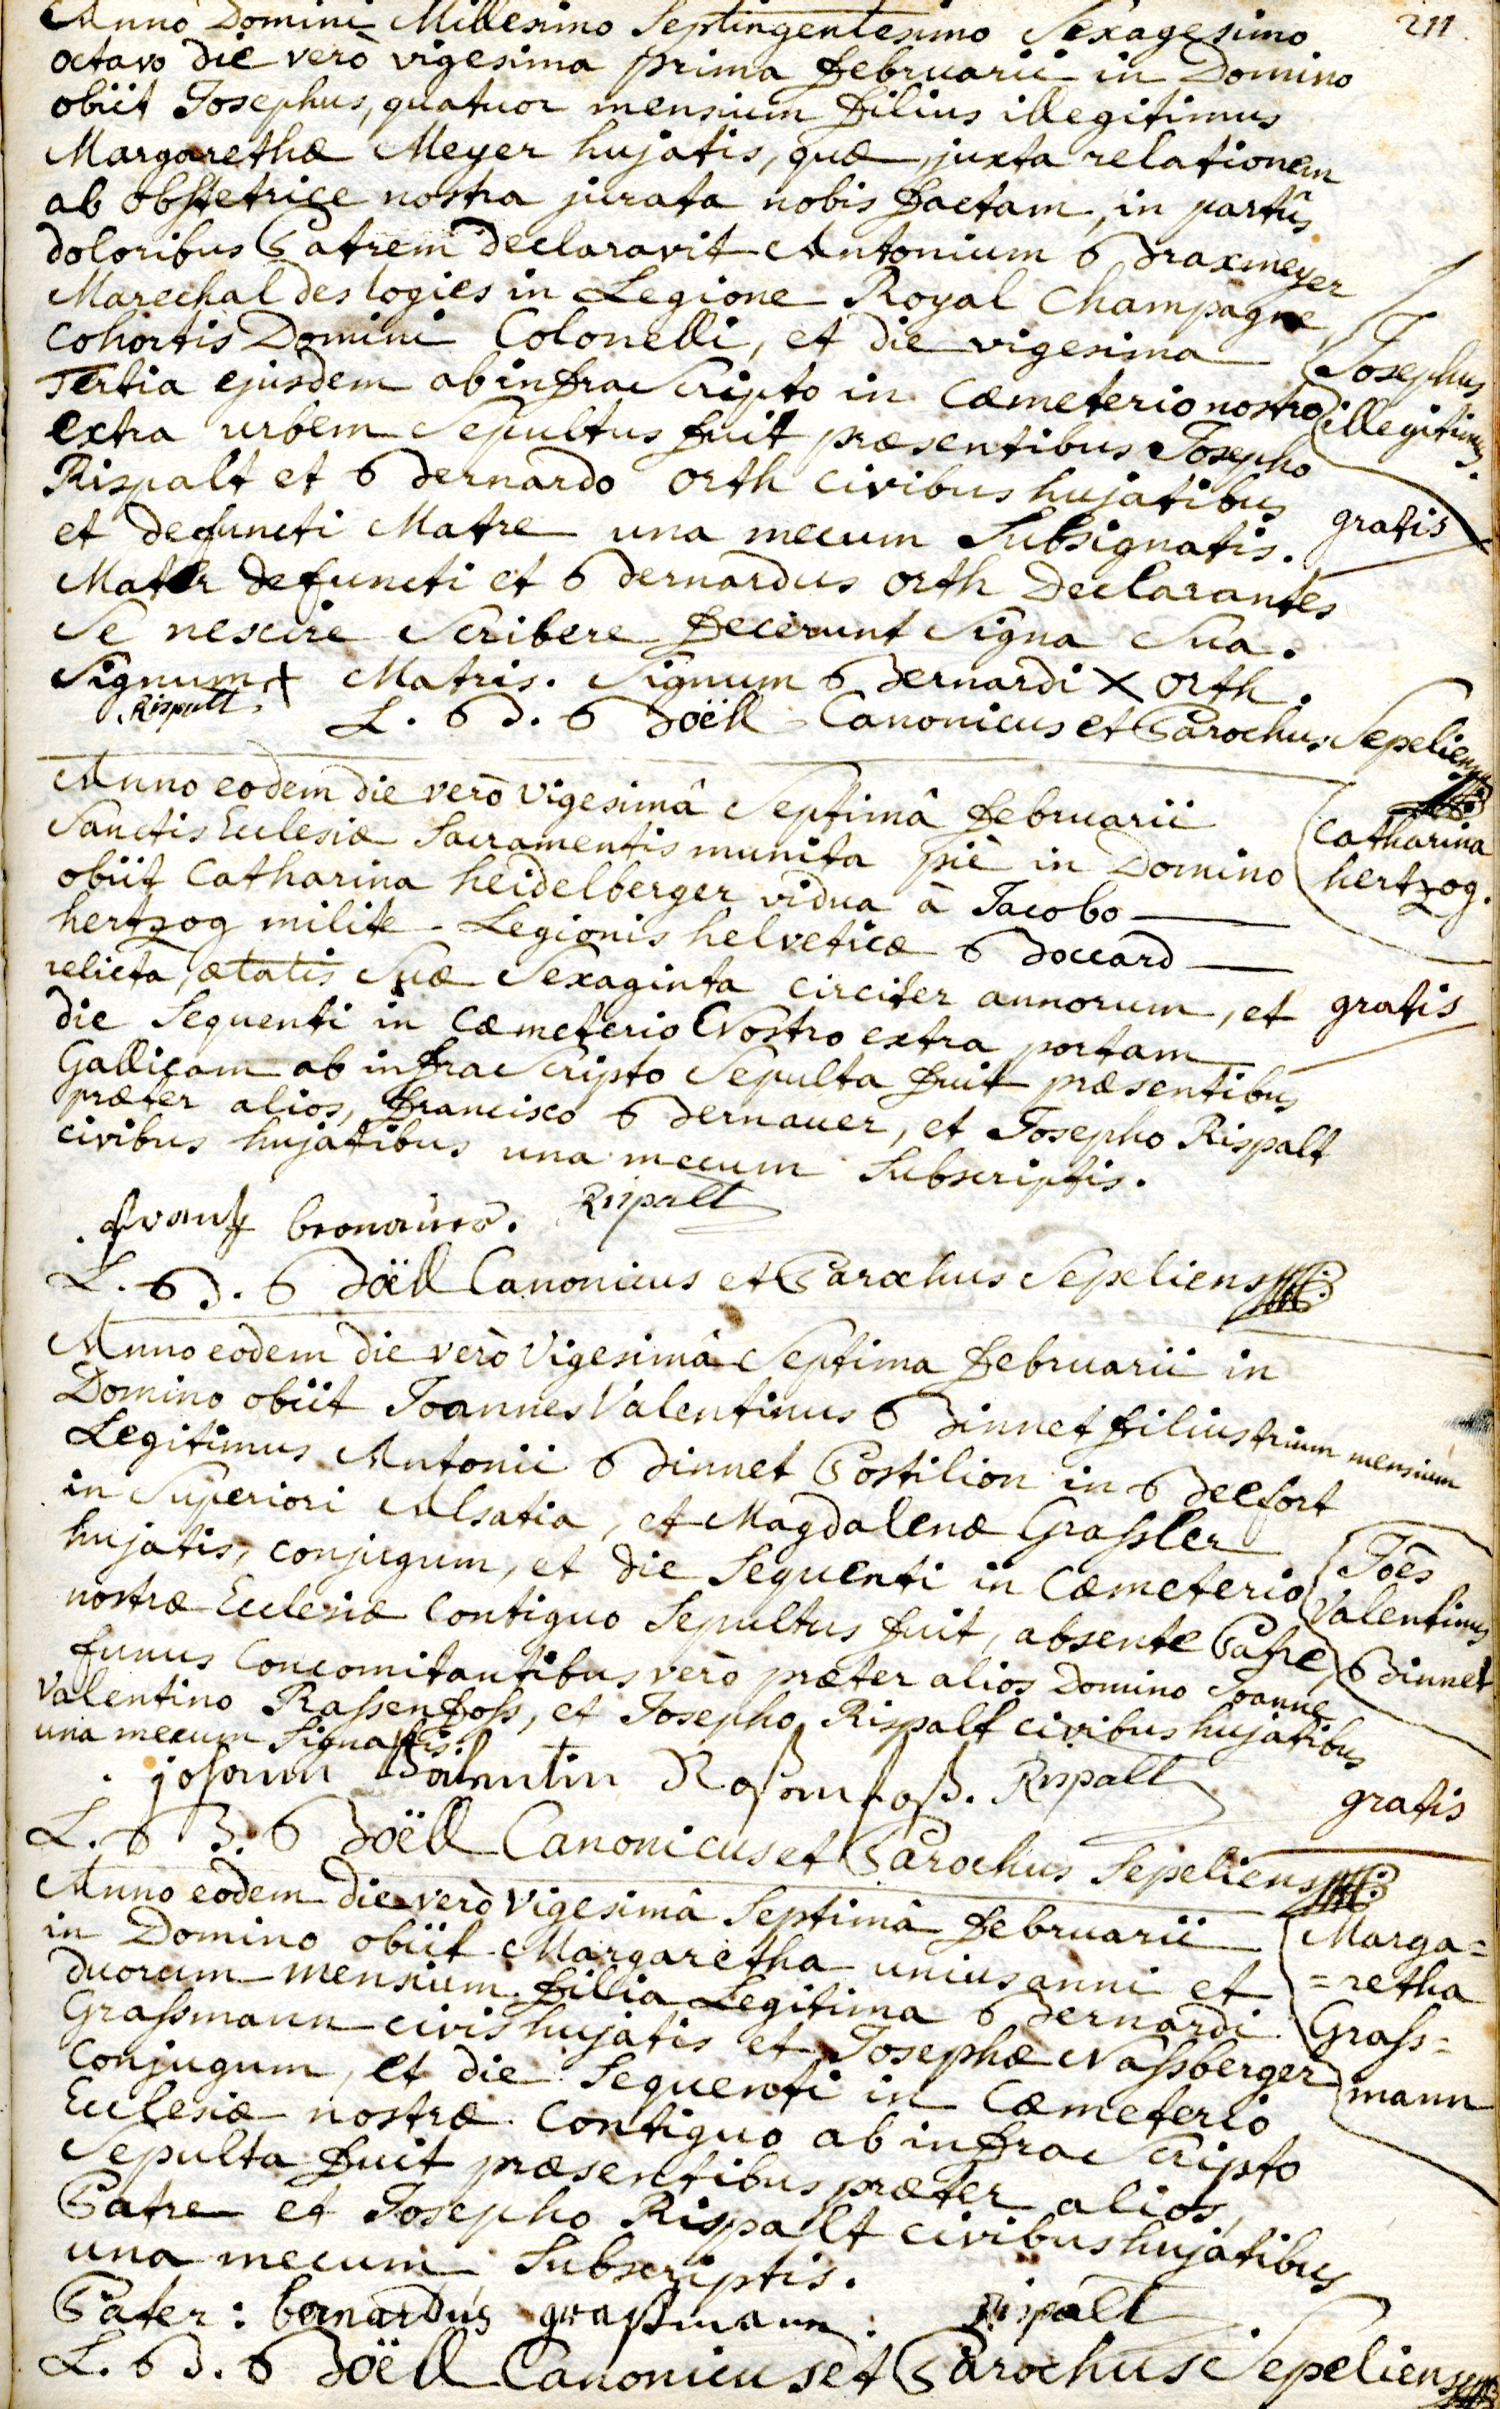 211.
Anno Domini Millesimo Septingentesimo Sexagesimo
octavo die verò vigesima prima februarii in Domino
obiit Josephus, quatuor mensium filius illegitimus
Margarethæ Meyer hujatis, quæ, juxta relationem
ab obstetrice nostra jurata nobis factam, in partûs
doloribus Patrem declaravit Antonium Braxmeyer
Marechal des logies in Legione Royal Champagne
cohortis Domini Colonelli, et die vigesima
Tertia ejusdem ab infra Scripto in Cæmeterio nostro
extra urbem Sepultus fuit præsentibus Josepho
Rispalt et Bernardo orth civibus hujatibus
et defuncti Matre una mecum Subsignatis.
Mater defuncti et Bernardus orth Declarantes
Se nescire Scribere fecerunt Signa Sua.
Signum + Matris. Signum Bernardi X orth.
Rispalt.
L. B. Boëll Canonicus et Parochus Sepeliens
Josephus
illegitimus.
gratis
Anno eodem die verò Vigesimâ Septimâ februarii
Sanctis Ecclesiæ Sacramentis munita piè in Domino
obiit Catharina heidelberger vidua à Jacobo
hertzog milite Legionis helveticæ Boccard
relicta, ætatis Suæ Sexaginta circiter annorum, et
die Sequenti in Cæmeterio Nostro extra portam
Gallicam ab infra Scripto Sepulta fuit præsentibus
præter alios, francisco Bernauer, et Josepho Rispalt
civibus hujatibus una mecum Subscriptis.
frantz bronauer. Rispalt
L. B. Boëll Canonicus et Parochus Sepeliens
Catharina
hertzog.
gratis
Anno eodem die verò Vigesimâ Septima februarii in
Domino obiit Joannes Valentinus Binnet filius trium mensium
Legitimus Antonii Binnet Postilion in Beefort
in Superiori Alsatia, et Magdalenæ Grassler
hujatis, conjugum, et die Sequenti in Cæmeterio
nostræ Ecclesiæ Contiguo Sepultus fuit, absente Patre,
funus Concomitantibus verò præter alios Domino Joanne
Valentino Rassenfoss, et Josepho Rispalt civibus hujatibus
una mecum Signatis.
johann Valentin Rasenfoß. Rispalt
L. B. Boëll Canonicus et Parochus Sepeliens
Joēs
Valentinus
Binnet
gratis
Anno eodem die verò Vigesimâ Septimâ februarii
in Domino obiit Margaretha unius anni et
duorum mensium filia Legitima Bernardi
Grassmann civis hujatis et Josephæ Nassberger
Conjugum, et die Sequenti in Cæmeterio
Ecclesiæ nostræ Contiguo ab infra Scripto
Sepulta fuit præsentibus præter alios,
Patre et Josepho Rispalt civibus hujatibus
una mecum Subscriptis.
Pater: bernardus graßmann. Rispalt
L. B. Boëll Canonicus et Parochus Sepeliens
Marga=
=retha
Grass=
mann